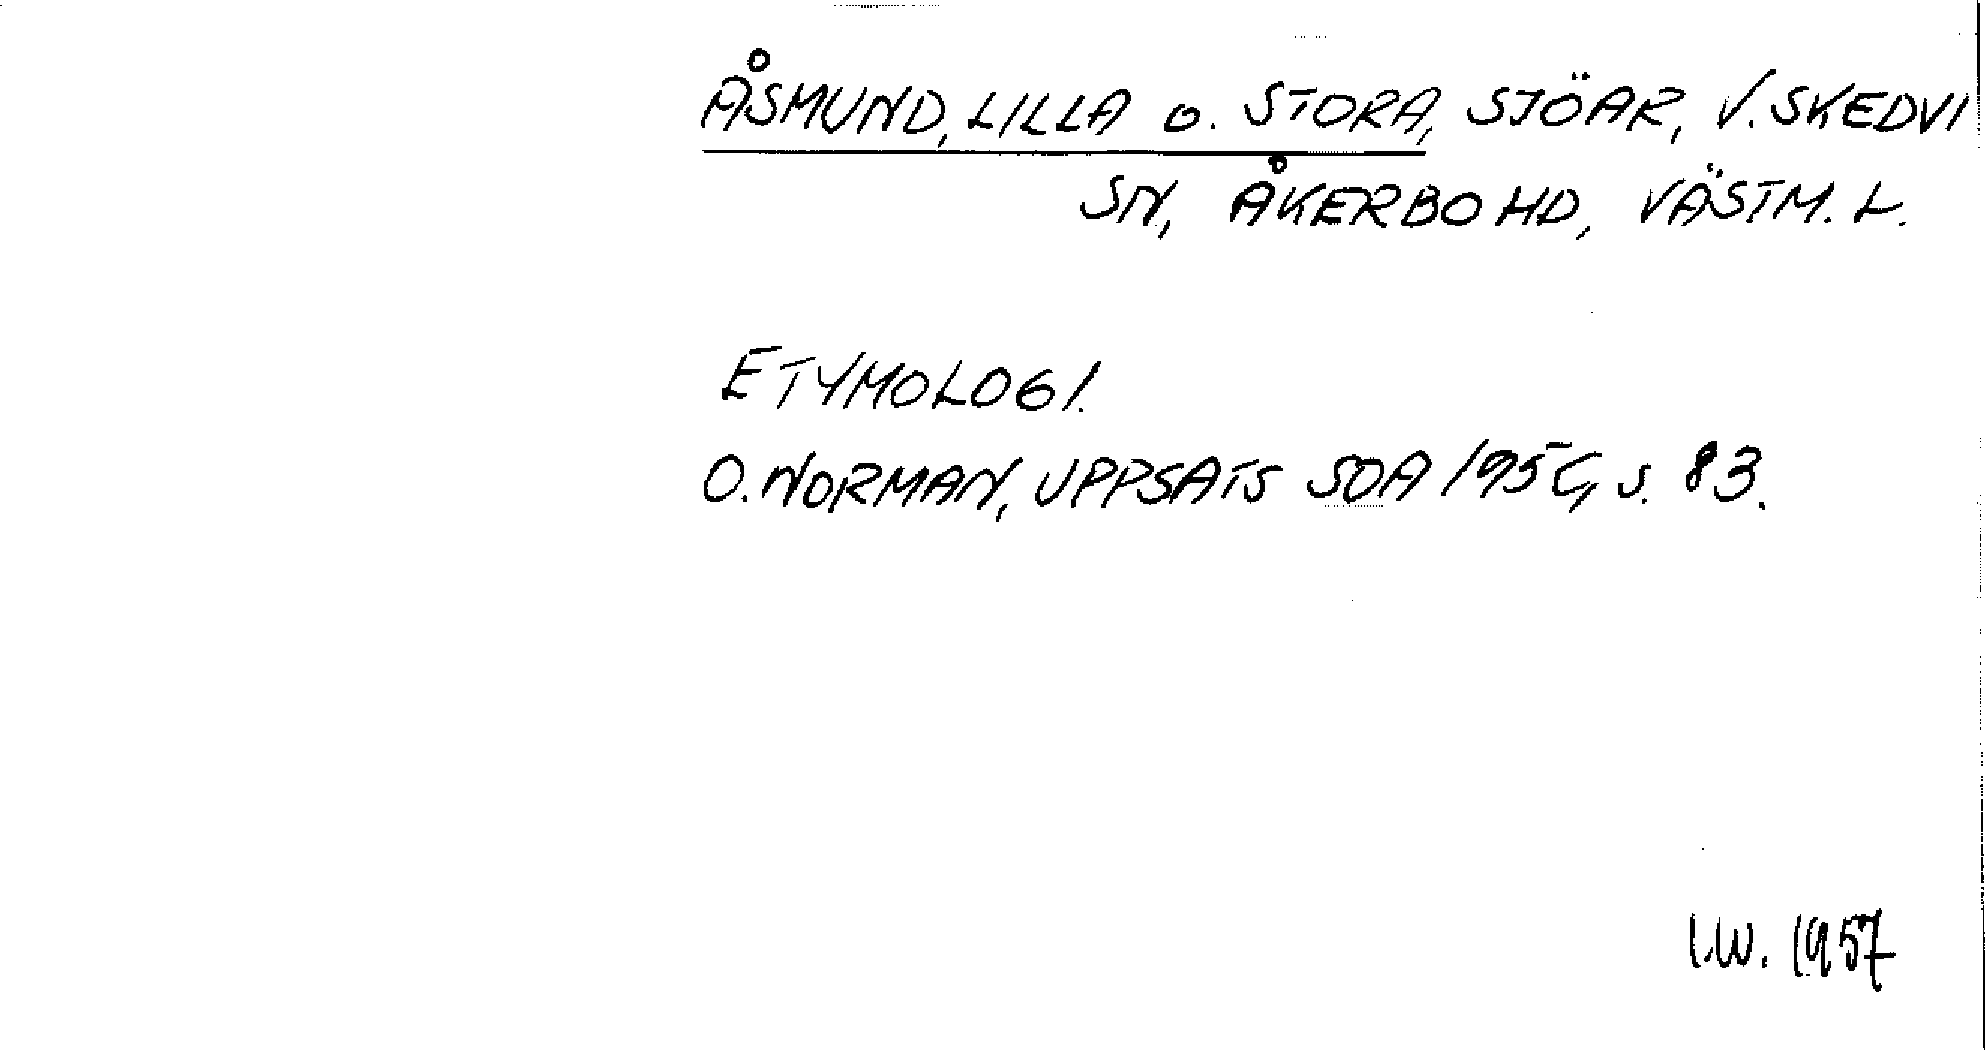 ÅSMUND, LILLA o. STORA, SJÖAR, V. SKEDVI
SN, ÅKERBO HD, VÄSTM. L.
ETYMOLOGI.
O. NORMAN, UPPSATS SOA s. 83.
I.W. 1957